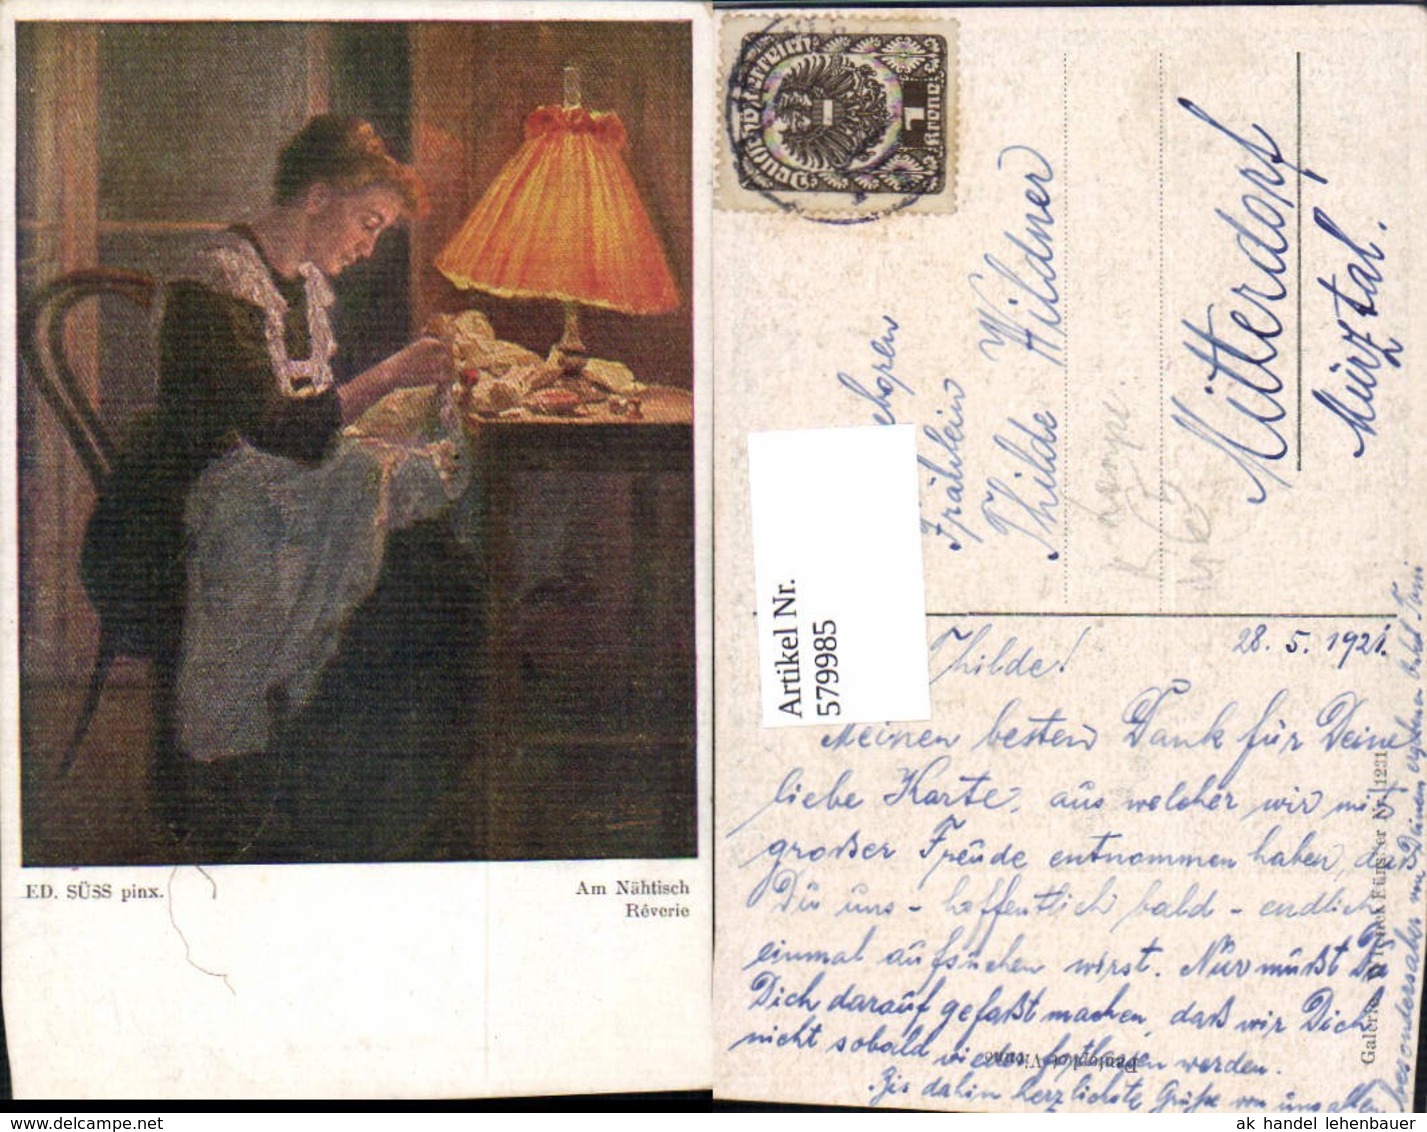 ED. SÜSS pinx.
Am Nähtisch
Rêverie
Deutschösterreich
1
Krone
Fräulein
Thilde Wildner
Mitterdorf
Mürztal.
Artikel Nr.
579985
28. 5. 1921.
Thilde!
Meinen besten Dank für Deine
liebe Karte, aus welcher wir mit
großer Freude entnommen haben, daß
Du uns - hoffentlich bald - endlich
einmal aufsuchen wirst. Nur mußt Du
Dich darauf gefaßt machen, daß wir Dich
nicht sobald wieder werden.
Bis dahin herzlichste Grüße von uns allen
Nr. 1231
ak handel lehenbauer